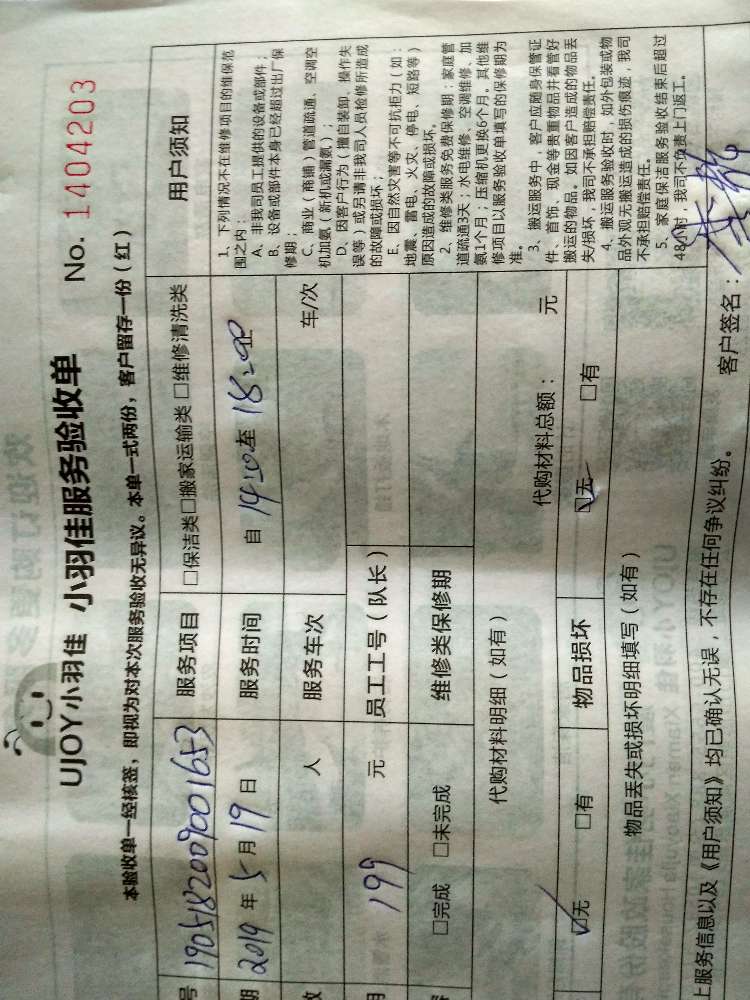 UJOY小羽佳 小羽佳服务验收单 No. 1404203
本验收单一经核签，即视为对本次服务验收无异议。本单一式两份，客户留存一份（红）
号 1905182009001653 服务项目 □保洁类□搬家运输类 □维修清洗类
期 2019 年 5 月 19 日 服务时间 自 14:00至 18:00止
数 人 服务车次 车/次
用 199 元 员工工号（队长）
容 □完成 □未完成 维修类保修期
代购材料明细（如有） 代购材料总额： 元
☑无 □有 物品损坏 ☑无 □有
物品丢失或损坏明细填写（如有）
用户须知
1、下列情况不在维修项目的维保范
围之内：
A、非我司员工提供的设备或部件；
B、设备或部件本身已经超过出厂保
修期；
C、商业（商铺）管道疏通、空调空
机加氨（新机或漏氨）；
D、因客户行为（擅自装卸、操作失
误等）或另请非我司人员检修所造成
的故障或损坏；
E、因自然灾害等不可抗拒力（如：
地震、雷电、火灾、停电、短路等）
原因造成的故障或损坏。
2、维修类服务免费保修期：家庭管
道疏通3天；水电维修、空调维修、加
氨1个月；压缩机更换6个月。其他维
修项目以服务验收单填写的保修期为
准。
3、搬运服务中，客户应随身保管证
件、首饰、现金等贵重物品并看管好
搬运的物品。如因客户造成的物品丢
失/损坏，我司不承担赔偿责任。
4、搬运服务验收时，如外包装或物
品外观无搬运造成的损伤痕迹，我司
不承担赔偿责任。
5、家庭保洁服务验收结束后超过
48小时，我司不负责上门返工。
上服务信息以及《用户须知》均已确认无误，不存在任何争议纠纷。 客户签名：